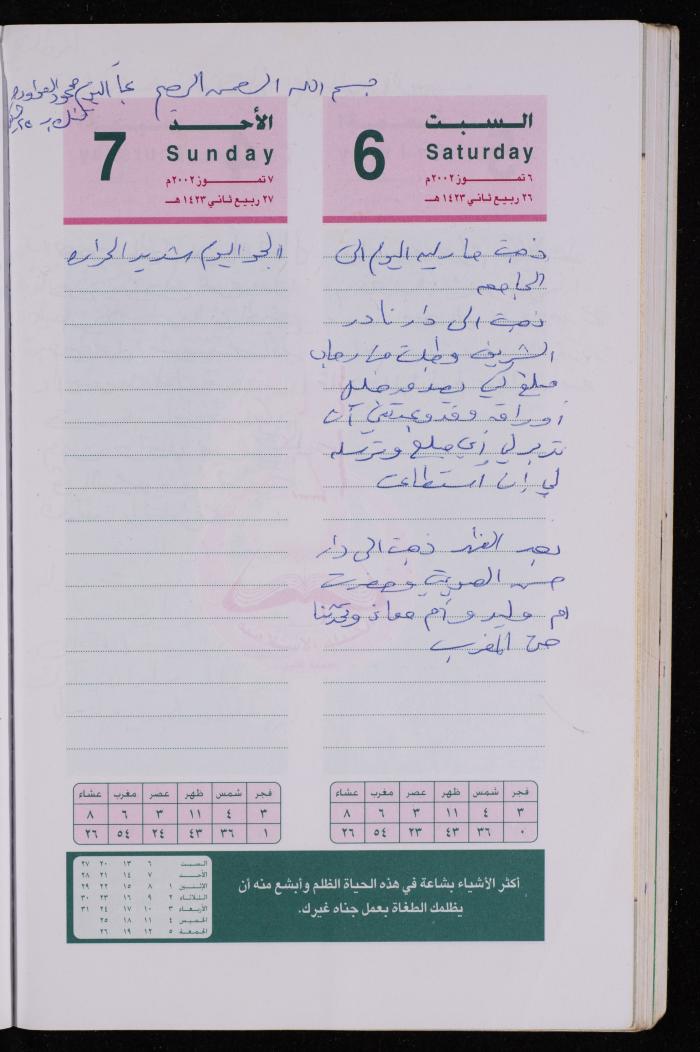 بسم الله الرحمن الرحيم
السبت
6
Saturday
٦ تموز ٢٠٠٢م
٢٦ ربيع ثاني ١٤٢٣هـ
ذهبت ماريه اليوم الى
الجامعه
ذهبت الى دار نادر
الشريف وطلبت من رحاب
مبلغ لي
أوراقه وقد وعدتني أن
تدبر لي أي مبلغ وترسله
لي إن استطاعت
بعد الظهر ذهبت الى دار
حسن وحضرت
ام وليد وأم معاذ وتحدثنا
حتى المغرب
الأحد
7
Sunday
٧ تموز ٢٠٠٢م
٢٧ ربيع ثاني ١٤٢٣هـ
الجو اليوم شديد الحراره
فجر شمس ظهر عصر مغرب عشاء
٣ ٤ ١١ ٣ ٦ ٨
٠ ٣٦ ٤٣ ٢٣ ٥٤ ٢٦
فجر شمس ظهر عصر مغرب عشاء
٣ ٤ ١١ ٣ ٦ ٨
١ ٣٦ ٤٣ ٢٤ ٥٤ ٢٦
أكثر الأشياء بشاعة في هذه الحياة الظلم وأبشع منه أن
يظلمك الطغاة بعمل جناه غيرك.
السبت ٦ ١٣ ٢٠ ٢٧
الأحد ٧ ١٤ ٢١ ٢٨
الإثنين ١ ٨ ١٥ ٢٢ ٢٩
الثلاثاء ٢ ٩ ١٦ ٢٣ ٣٠
الأربعاء ٣ ١٠ ١٧ ٢٤ ٣١
الخميس ٤ ١١ ١٨ ٢٥
الجمعة ٥ ١٢ ١٩ ٢٦